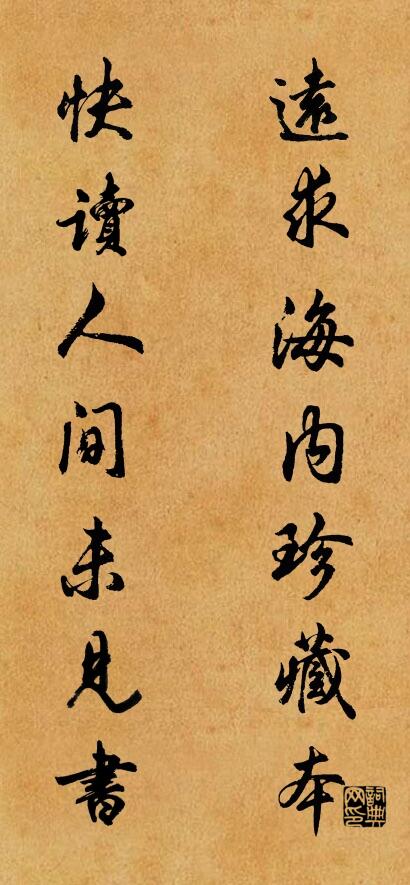 遠求海内珍藏本
快讀人間未見書
詞典网印